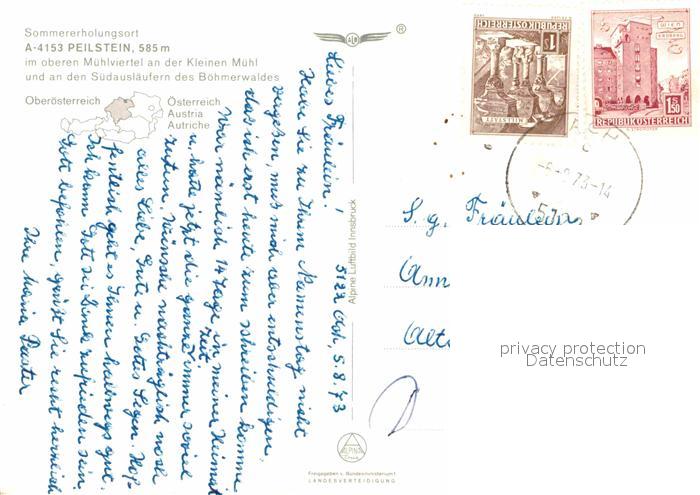 Sommererholungsort
A-4153 PEILSTEIN, 585 m
im oberen Mühlviertel an der Kleinen Mühl
und an den Südausläufern des Böhmerwaldes
Oberösterreich
Österreich
Austria
Autriche
ALPINE LUFTBILD
®
REPUBLIK ÖSTERREICH
1 S
MILLSTATT
WIEN
ERDBERG
1.50
REPUBLIK ÖSTERREICH
73-14
5122 Ach, 5.8.73
Liebes Fräulein!
Habe Sie zu Ihrem Namenstag nicht
vergessen, muß mich aber entschuldigen,
daß ich erst heute zum schreiben komme.
War nämlich 14 Tage in meiner Heimat
u. hatte jetzt die ganze Zeit immer soviel
zu tun. Wünsche nachträglich noch
alles Liebe, Gute u. Gottes Segen. Hof-
fentlich geht es Ihnen halbwegs gut.
Ich kann Gott sei Dank zufrieden sein.
Gott befohlen, grüßt Sie recht herzlich
Ihre Maria
S. g. Fräulein
Alpine Luftbild Innsbruck
ALPINE
Freigegeben v. Bundesministerium f.
LANDESVERTEIDIGUNG
privacy protection
Datenschutz